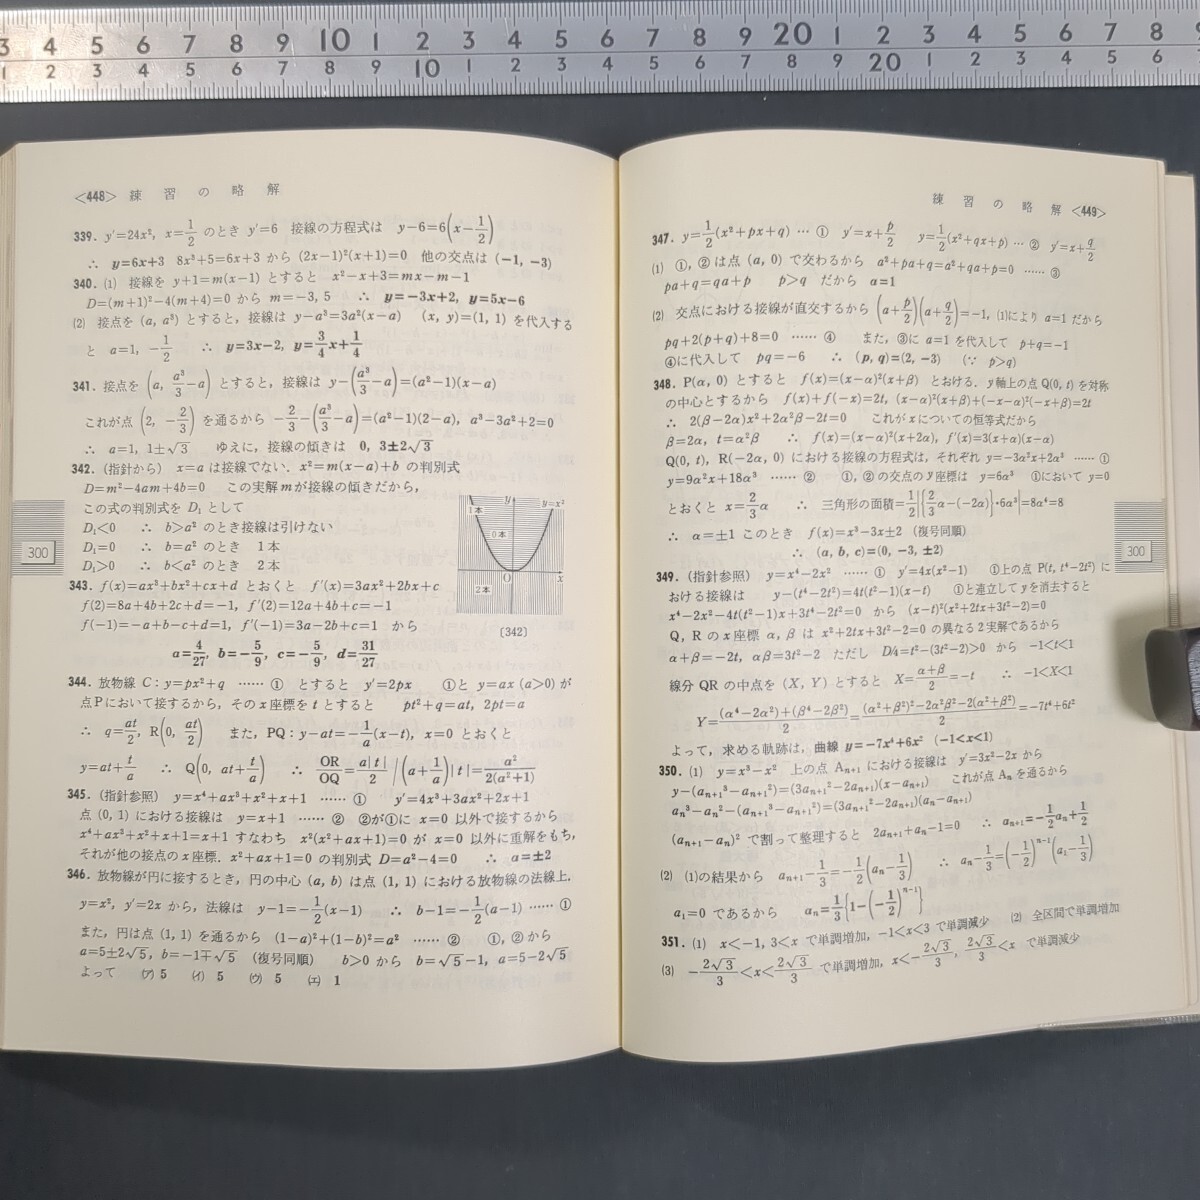 3 4 5 6 7 8 9 10 1 2 3 4 5 6 7 8 9 20 1 2 3 4 5 6 7 8 9
1 2 3 4 5 6 7 8 9 10 1 2 3 4 5 6 7 8 9 20 1 2 3 4 5 6
<448> 練習の略解
339. y′=24x², x=1/2 のとき y′=6 接線の方程式は y−6=6(x−1/2)
∴ y=6x+3 8x³+5=6x+3 から (2x−1)²(x+1)=0 他の交点は (−1, −3)
340. (1) 接線を y+1=m(x−1) とすると x²−x+3=mx−m−1
D=(m+1)²−4(m+4)=0 から m=−3, 5 ∴ y=−3x+2, y=5x−6
(2) 接点を (a, a³) とすると, 接線は y−a³=3a²(x−a) (x, y)=(1, 1) を代入する
と a=1, −1/2 ∴ y=3x−2, y=3/4x+1/4
341. 接点を (a, a³/3−a) とすると, 接線は y−(a³/3−a)=(a²−1)(x−a)
これが点 (2, −2/3) を通るから −2/3−(a³/3−a)=(a²−1)(2−a), a³−3a²+2=0
∴ a=1, 1±√3 ゆえに, 接線の傾きは 0, 3±2√3
342. (指針から) x=a は接線でない. x²=m(x−a)+b の判別式
D=m²−4am+4b=0 この実解 m が接線の傾きだから,
この式の判別式を D₁ として
D₁<0 ∴ b>a² のとき接線は引けない
D₁=0 ∴ b=a² のとき 1本
D₁>0 ∴ b<a² のとき 2本
y y=x²
1本
0本
O x
2本
〔342〕
343. f(x)=ax³+bx²+cx+d とおくと f′(x)=3ax²+2bx+c
f(2)=8a+4b+2c+d=−1, f′(2)=12a+4b+c=−1
f(−1)=−a+b−c+d=1, f′(−1)=3a−2b+c=1 から
a=4/27, b=−5/9, c=−5/9, d=31/27
344. 放物線 C : y=px²+q …… ① とすると y′=2px ①と y=ax (a>0) が
点Pにおいて接するから, その x 座標を t とすると pt²+q=at, 2pt=a
∴ q=at/2, R(0, at/2) また, PQ : y−at=−1/a(x−t), x=0 とおくと
y=at+t/a ∴ Q(0, at+t/a) ∴ OR/OQ=a|t|/2 /(a+1/a)|t|=a²/2(a²+1)
345. (指針参照) y=x⁴+ax³+x²+x+1 …… ① y′=4x³+3ax²+2x+1
点 (0, 1) における接線は y=x+1 …… ② ②が①に x=0 以外で接するから
x⁴+ax³+x²+x+1=x+1 すなわち x²(x²+ax+1)=0 が x=0 以外に重解をもち,
それが他の接点の x 座標. x²+ax+1=0 の判別式 D=a²−4=0 ∴ a=±2
346. 放物線が円に接するとき, 円の中心 (a, b) は点 (1, 1) における放物線の法線上.
y=x², y′=2x から, 法線は y−1=−1/2(x−1) ∴ b−1=−1/2(a−1) …… ①
また, 円は点 (1, 1) を通るから (1−a)²+(1−b)²=a² …… ② ①, ②から
a=5±2√5, b=−1∓√5 (復号同順) b>0 から b=√5−1, a=5−2√5
よって (ア) 5 (イ) 5 (ウ) 5 (エ) 1
300
練習の略解 <449>
347. y=1/2(x²+px+q) … ① y′=x+p/2 y=1/2(x²+qx+p) … ② y′=x+q/2
(1) ①, ②は点 (a, 0) で交わるから a²+pa+q=a²+qa+p=0 …… ③
pa+q=qa+p p>q だから a=1
(2) 交点における接線が直交するから (a+p/2)(a+q/2)=−1, (1)により a=1 だから
pq+2(p+q)+8=0 …… ④ また, ③に a=1 を代入して p+q=−1
④に代入して pq=−6 ∴ (p, q)=(2, −3) (∵ p>q)
348. P(α, 0) とすると f(x)=(x−α)²(x+β) とおける. y軸上の点 Q(0, t) を対称
の中心とするから f(x)+f(−x)=2t, (x−α)²(x+β)+(−x−α)²(−x+β)=2t
∴ 2(β−2α)x²+2α²β−2t=0 これが x についての恒等式だから
β=2α, t=α²β ∴ f(x)=(x−α)²(x+2α), f′(x)=3(x+α)(x−α)
Q(0, t), R(−2α, 0) における接線の方程式は, それぞれ y=−3α²x+2α³ …… ①
y=9α²x+18α³ …… ② ①, ② の交点の y 座標は y=6α³ ①において y=0
とおくと x=2/3α ∴ 三角形の面積=1/2|{2/3α−(−2α)}·6α³|=8α⁴=8
∴ α=±1 このとき f(x)=x³−3x±2 (復号同順)
∴ (a, b, c)=(0, −3, ±2)
349. (指針参照) y=x⁴−2x² …… ① y′=4x(x²−1) ①上の点 P(t, t⁴−2t²) に
おける接線は y−(t⁴−2t²)=4t(t²−1)(x−t) ①と連立して y を消去すると
x⁴−2x²−4t(t²−1)x+3t⁴−2t²=0 から (x−t)²(x²+2tx+3t²−2)=0
Q, R の x 座標 α, β は x²+2tx+3t²−2=0 の異なる2実解であるから
α+β=−2t, αβ=3t²−2 ただし D/4=t²−(3t²−2)>0 から −1<t<1
線分 QR の中点を (X, Y) とすると X=α+β/2=−t ∴ −1<X<1
Y=(α⁴−2α²)+(β⁴−2β²)/2=(α²+β²)²−2α²β²−2(α²+β²)/2=−7t⁴+6t²
よって, 求める軌跡は, 曲線 y=−7x⁴+6x² (−1<x<1)
350. (1) y=x³−x² 上の点 Aₙ₊₁ における接線は y′=3x²−2x から
y−(aₙ₊₁³−aₙ₊₁²)=(3aₙ₊₁²−2aₙ₊₁)(x−aₙ₊₁) これが点 Aₙ を通るから
aₙ³−aₙ²−(aₙ₊₁³−aₙ₊₁²)=(3aₙ₊₁²−2aₙ₊₁)(aₙ−aₙ₊₁)
(aₙ₊₁−aₙ)² で割って整理すると 2aₙ₊₁+aₙ−1=0 ∴ aₙ₊₁=−1/2aₙ+1/2
(2) (1)の結果から aₙ₊₁−1/3=−1/2(aₙ−1/3) ∴ aₙ−1/3=(−1/2)ⁿ⁻¹(a₁−1/3)
a₁=0 であるから aₙ=1/3{1−(−1/2)ⁿ⁻¹}
351. (1) x<−1, 3<x で単調増加, −1<x<3 で単調減少 (2) 全区間で単調増加
(3) −2√3/3<x<2√3/3 で単調増加, x<−2√3/3, 2√3/3<x で単調減少
300